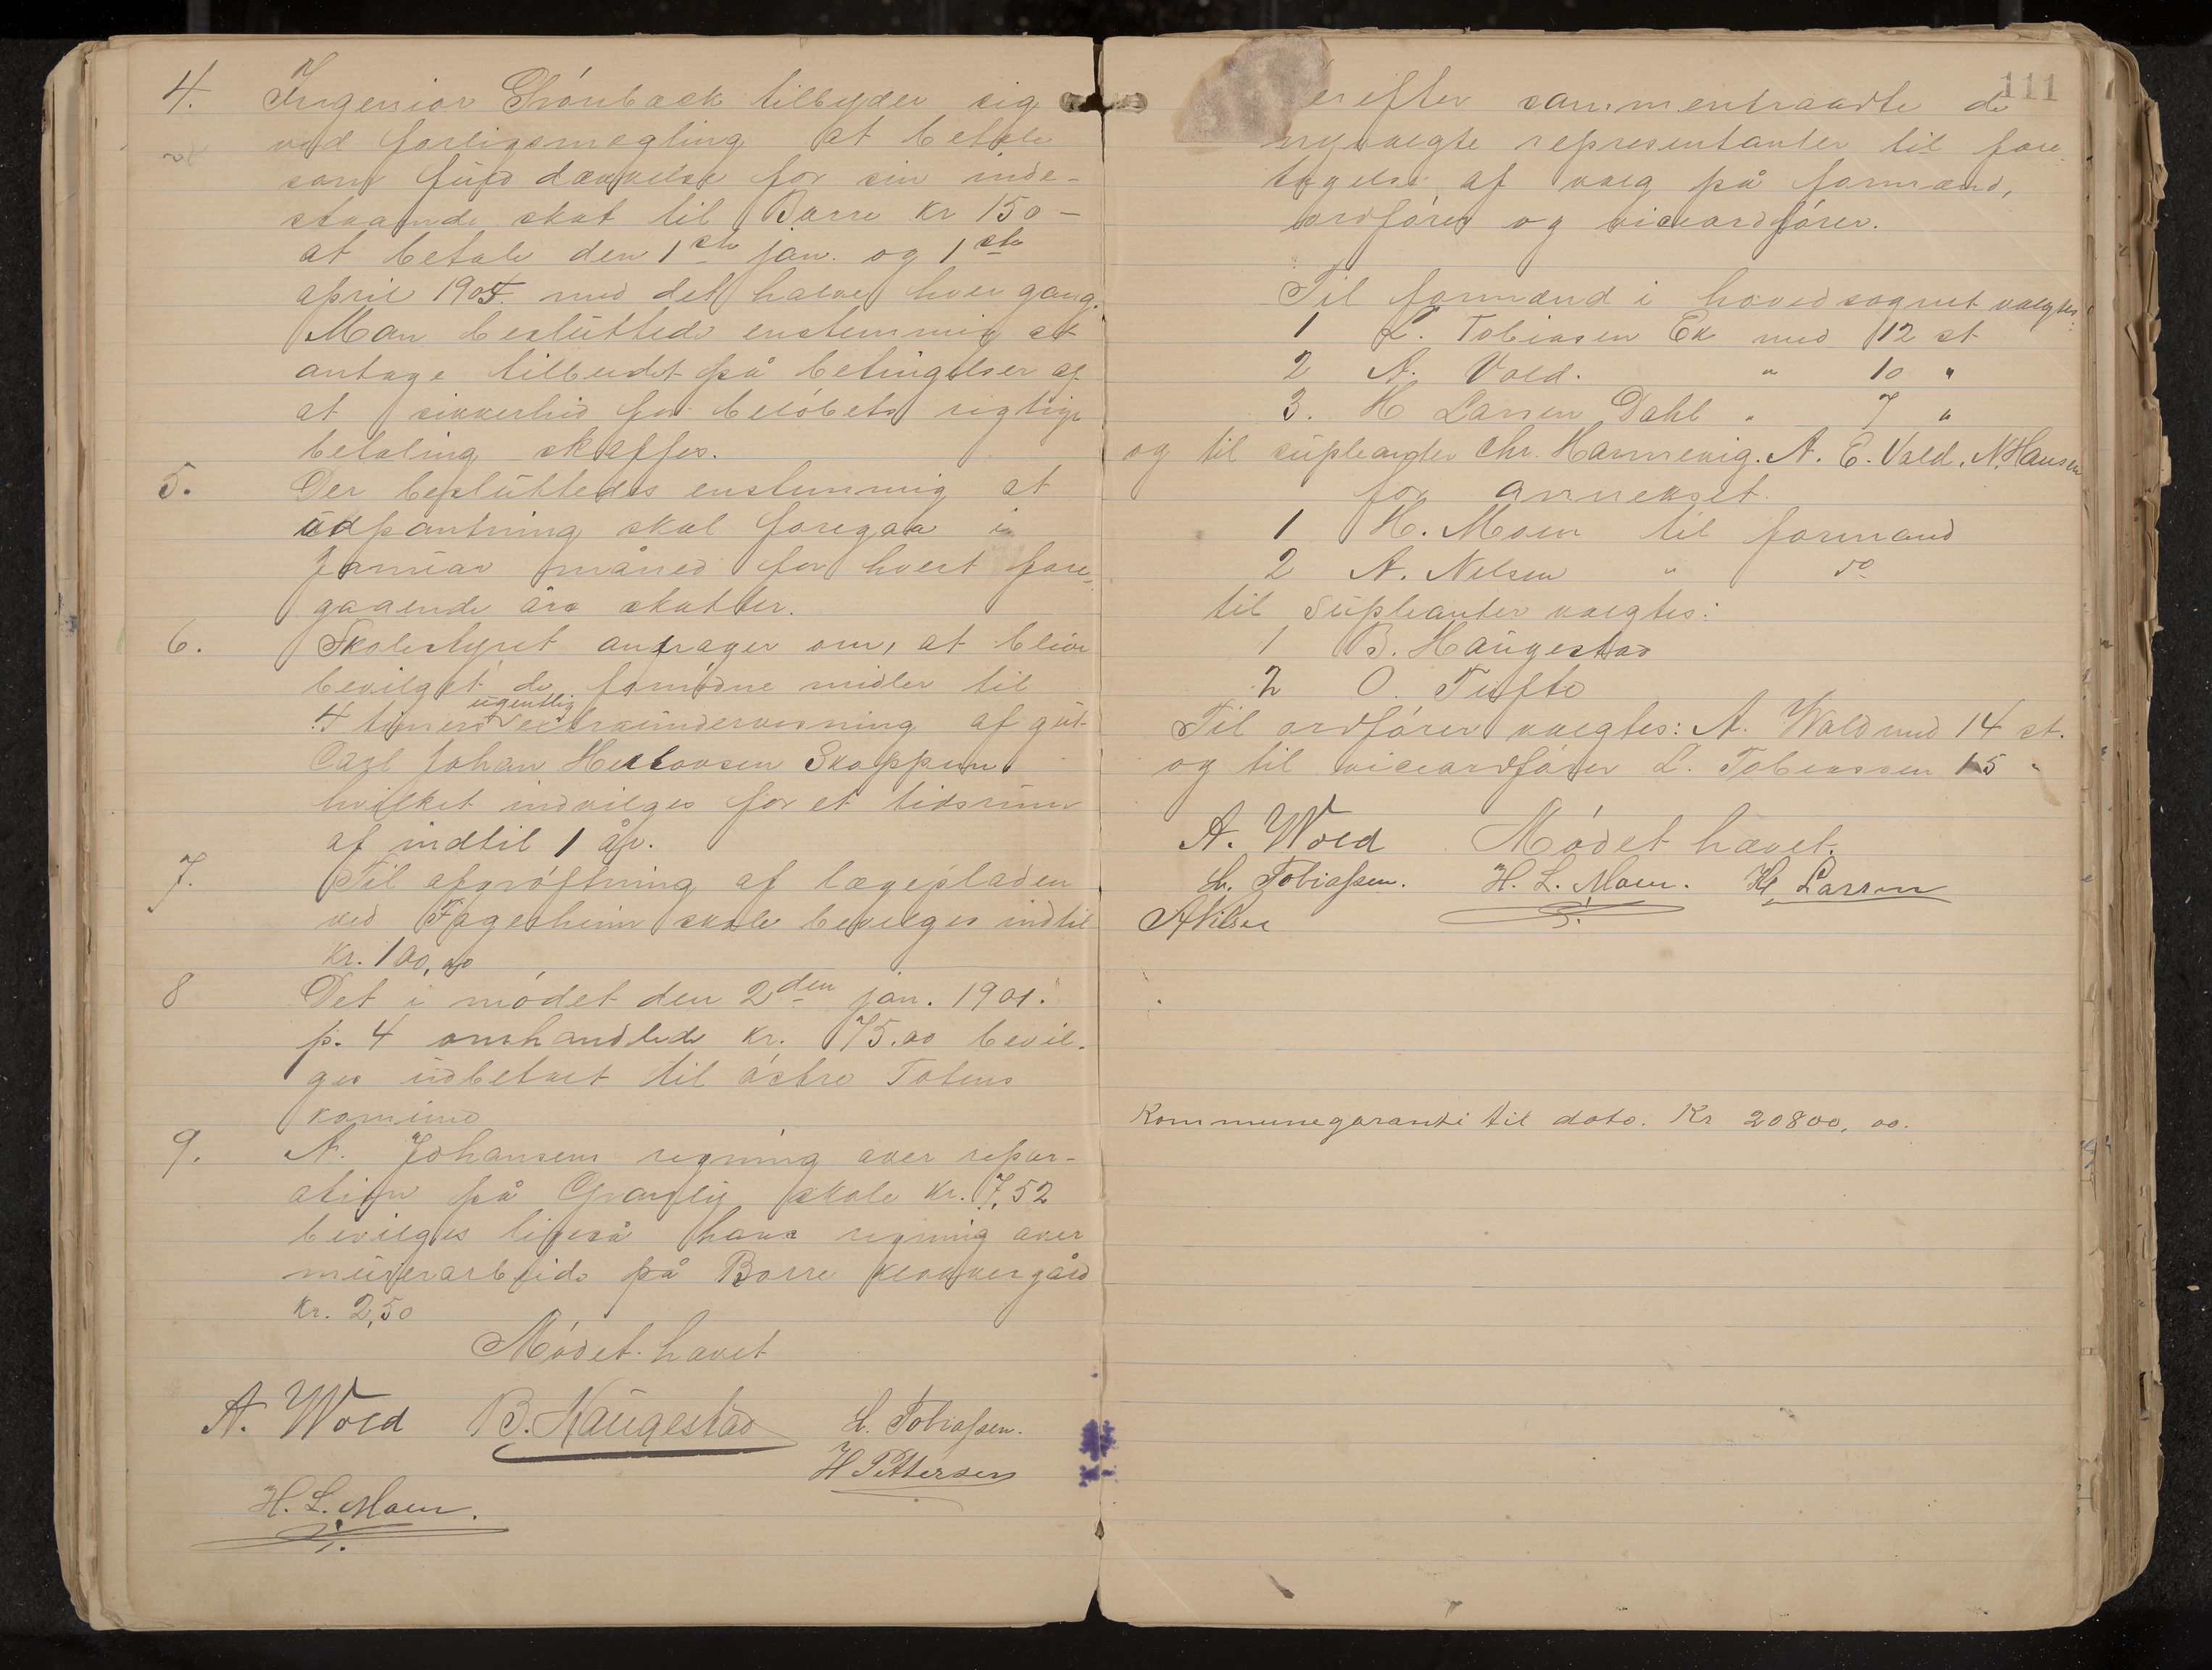 4. Ingeniør Grónbæck tilbyder sig
ved forligsmægling at betale
som fuld dækkelse for sin inde-
staaende skat til Borre Kr 150 –
at betale den 1ste jan. og 1ste
april 1905 med det halve hver gang.
Man besluttede enstemmig at
antage tilbudet på betingelser af
at sikkerhed for belóbets rigtige
betaling skaffes.
5. Der besluttedes enstemmig at
udpantning skal foregaa i
Januar måned for hvert fore-
gaaende års skatter.
6. Skolestyret andrager om, at blive
bevilget de fornódne midler til
ugentlig
4 timers extraundervisning af gut-
Carl Johan Skoppum,
hvilket indvilges for et tidsrum
af indtil 1 år.
7. Til afgróftning af lægepladen
ved Fagerheim skole bevilges indtil
Kr. 100,00
8 Det i módet den 2den jan. 1901.
p. 4 omhandlede kr. 75.00 bevil-
ges udbetalt til óstre Totens
komune
9. A. Johansens regning over repar-
ation på skole Kr. 7,52
bevilges ligeså hans regning over
murerarbeide på Borre klokkergård
Kr. 2,50
Módet hævet
A. Wold B. Haugestad L. Tobiassen.
H Pettersen
H. L. Moen.
111
erefter sammentraadte de
nyvalgte representanter til fore-
tagelse af valg på formænd,
ordfórer og viceordfórer.
Til formænd i hovedsognet valgtes:
1 L. Tobiasen Ek med 12 st
2 A. Vold. " 10 "
3. H Larsen Dahl " 7 "
og til supleanter Chr. Hannevig. A. E. Vold. N. Hansen
for annekset.
1 H. Moen til formand
2 A. Nelsen " do
til Supleanter valgtes:
1 B. Haugestad
2 O. Tufte
Til ordfórer valgtes: A. Wold med 14 st.
og til viceordfórer L. Tobiassen 15 "
A. Wold Módet hævet.
L. Tobiassen. H. L. Moen. H. Larsen
A Nilsen
Kommunegaranti til dato. Kr 20800, 00.